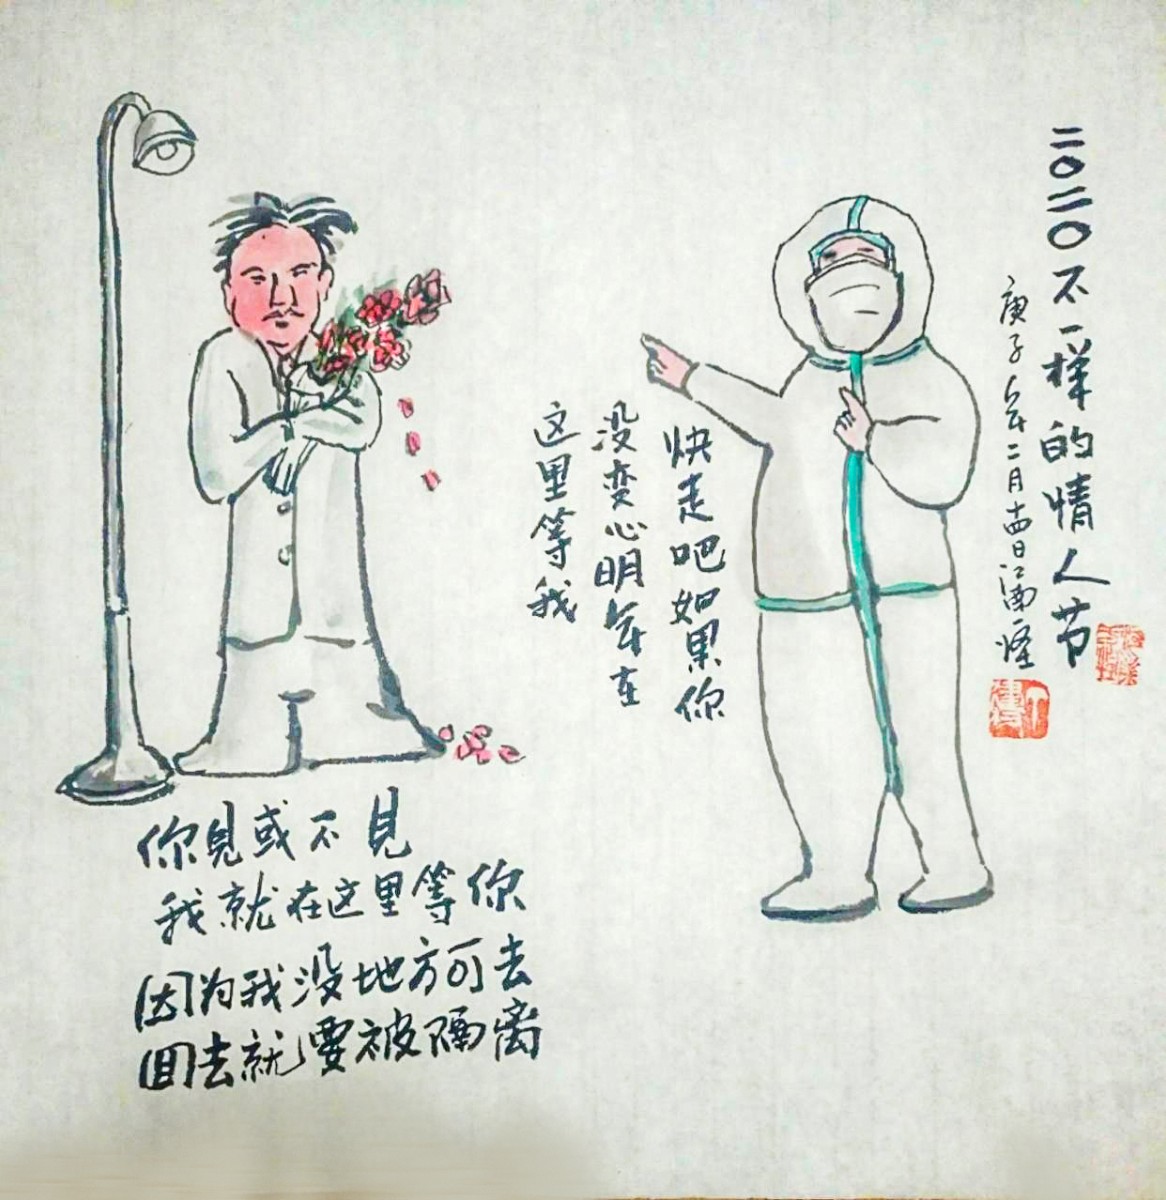 二〇二〇不一样的情人节
庚子年二月十四日江南怪
快走吧如果你
没变心明年在
这里等我
你见或不见
我就在这里等你
因为我没地方可去
回去就要被隔离